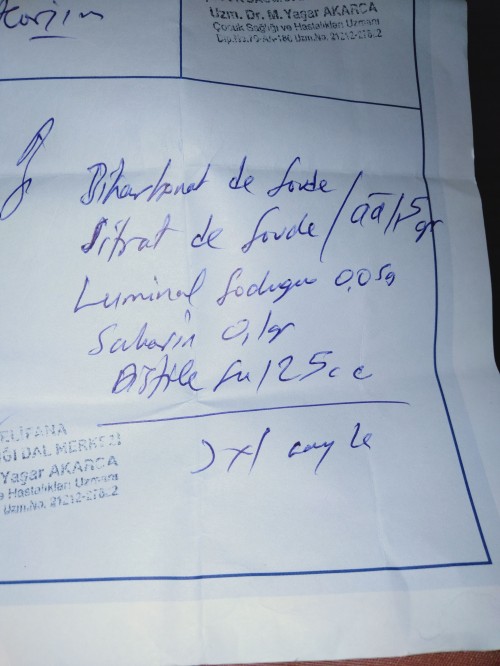 Uzm. Dr. M. Yaşar AKARCA
Çocuk Sağlığı ve Hastalıkları Uzmanı
Bikarbonat de Soude
Sitrat de Soude / āā 1,5 gr
Luminal Sodique 0,05g
Sakarin 0,1gr
Distile su 125 cc
3x1 çay k
ELİFANA
DAL MERKEZİ
Yaşar AKARCA
e Hastalıkları Uzmanı